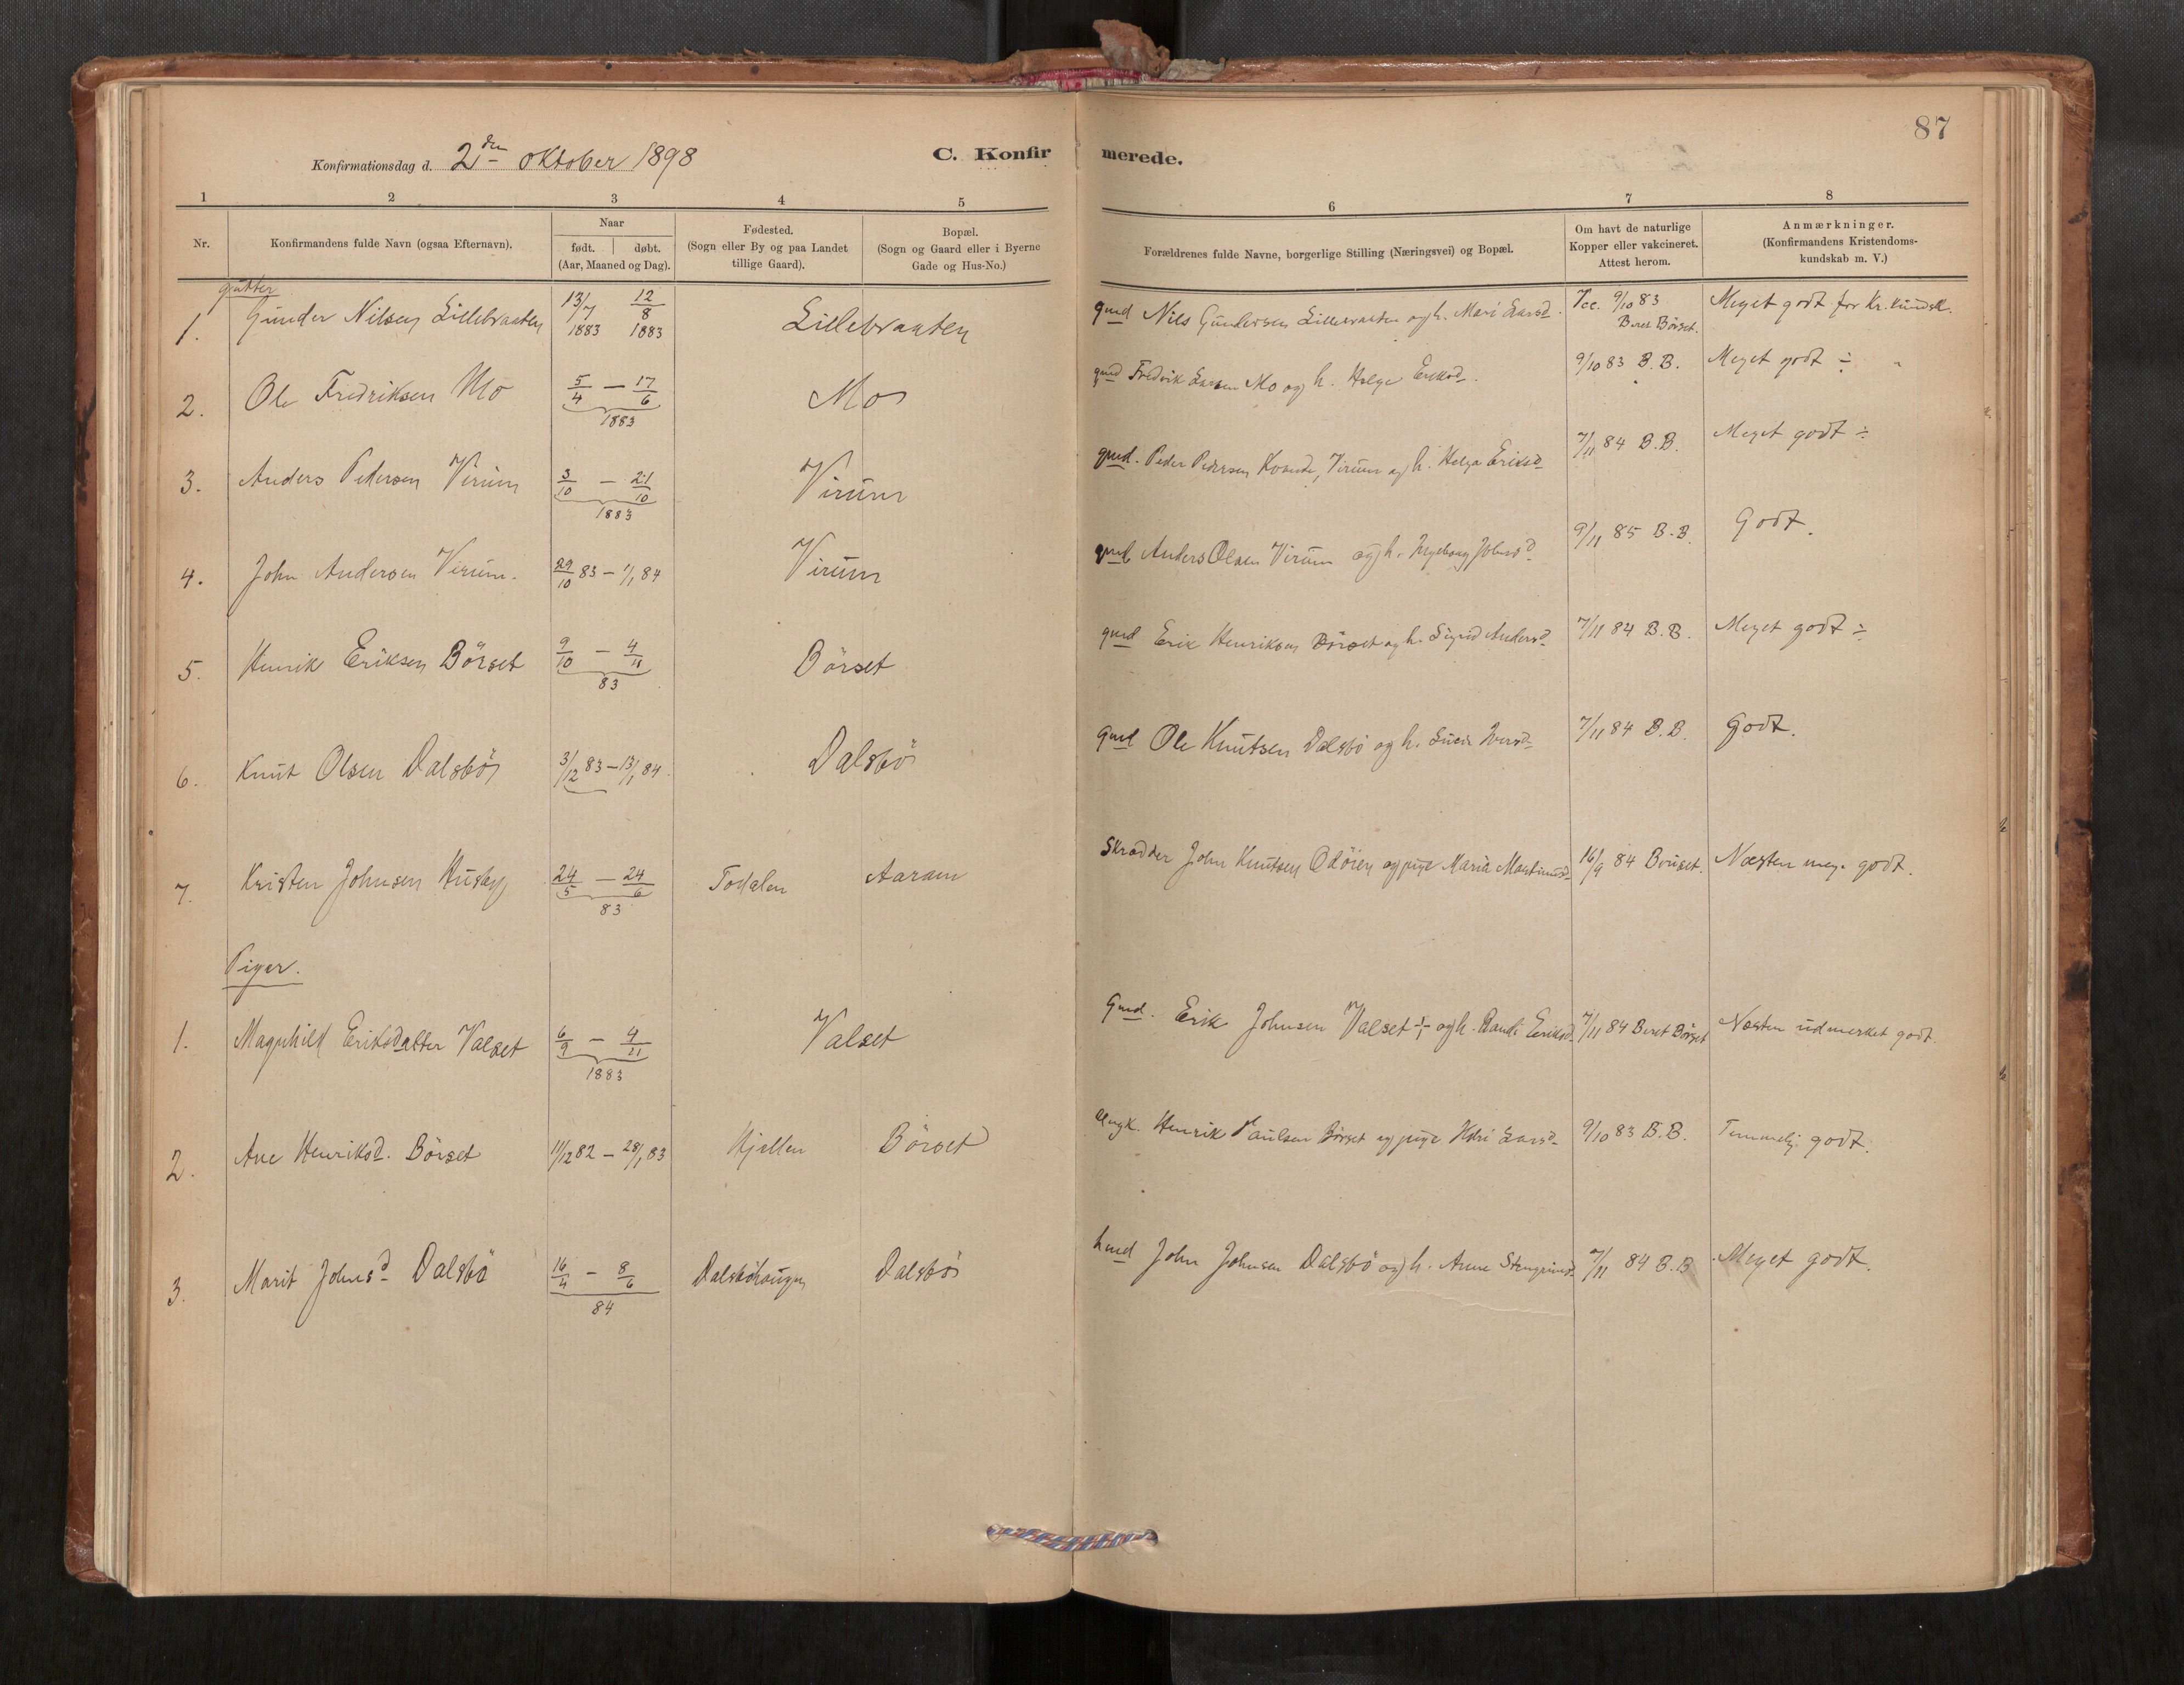 87
Konfirmationsdag d. 2den Oktober 1898
C. Konfirmerede.
1 2 3 4 5 6 7 8
Nr.
Konfirmandens fulde Navn (ogsaa Efternavn).
Naar
født. døbt.
(Aar, Maaned og Dag).
Fødested.
(Sogn eller By og paa Landet
tillige Gaard).
Bopæl.
(Sogn og Gaard eller i Byerne
Gade og Hus-No.)
Forældrenes fulde Navne, borgerlige Stilling (Næringsvei) og Bopæl.
Om havt de naturlige
Kopper eller vakcineret.
Attest herom.
Anmærkninger.
(Konfirmandens Kristendoms-
kundskab m. V.)
gutter
1. Gunder Nilsen Lillebraaten 13/7 1883 12/8 1883 Lillebraaten gmd Nils Gundersen Lillebraaten og h. Mari Larsd. Vcc. 9/10 83 Beret Börset. Meget godt for Kr. kundsk.
2. Ole Fredriksen Mo 5/4 — 17/6 1883 Mo gmd Fredrik Larsen Mo og h. Helge Eriksd. 9/10 83 B.B. Meget godt ÷ "
3. Anders Pedersen Virum 3/10 — 21/10 1883 Virum gmd. Peder Pedersen Virum og h. Helga Eriksd 7/11 84 B.B. Meget godt ÷
4. John Andersen Virum. 29/10 83 — 1/1 84 Virum gmd Anders Olsen Virum og h. Ingeborg Johnsd 9/11 85 B.B. Godt.
5. Henrik Eriksen Börset 9/10 — 4/11 83 Börset gmd Erik Henriksen Börset og h. Sigrid Andersd 7/11 84 B.B. Meget godt ÷
6. Knut Olsen Dalsbö 3/12 83 — 13/1 84. Dalsbö Gmd Ole Knutsen Dalsbö og h. Iversd 7/11 84 B.B. Godt.
7. Kristen Johnsen Husby 24/5 — 24/6 83 Todalen Aaram Skrædder John Knutsen Ödöien og pige Maria Mortinusd 16/9 84 Næsten meg. godt.
Piger.
1. Magnhild Eriksdatter Valset 6/9 — 4/11 1883 Valset Gmd. Erik Johnsen Valset og h. Randi Eriksd 7/11 84 Beret Börset Næsten udmerket godt
2. Ane Henriksd. Börset 11/12 82 — 28/1 83 Hjellen Börset Ungk. Henrik Paulsen Börset og pige Larsd 9/10 83 B.B. Temmelig godt.
3. Marit Johnsd Dalsbö 16/4 — 8/6 84 Dalsböhaugen Dalsbö hmd John Johnsen Dalsbö og h. Anne Stengrimsd 7/11 84 B.B. Meget godt.